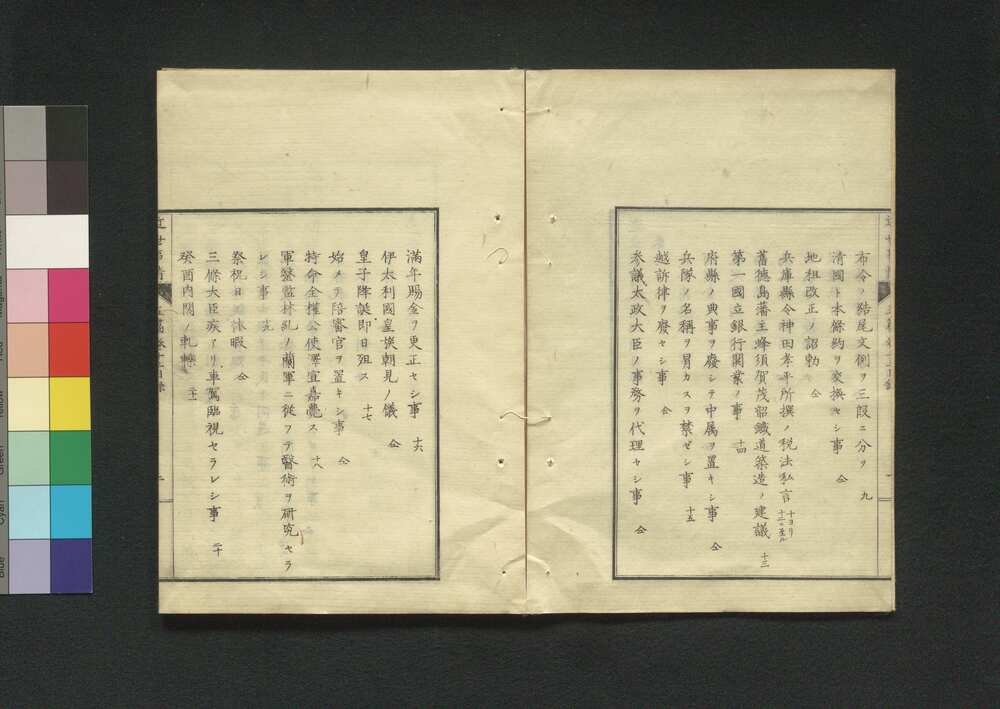 布令ノ結尾文例ヲ三段ニ分ツ 九
清國ト本條約ヲ交換セシ事 仝
地租改正ノ詔勅 仝
兵庫縣令神田孝平所撰ノ税法私言 十ヨリ十二ニ至ル
舊德島藩主蜂須賀茂韶鐵道築造ノ建議 十三
第一國立銀行開業ノ事 十四
府縣ノ典事ヲ廢シテ中属ヲ置キシ事 仝
兵隊ノ名稱ヲ冒カスヲ禁ゼシ事 十五
越訴律ヲ廢セシ事 仝
参議太政大臣ノ事務ヲ代理セシ事 仝
滿年賜金ヲ更正セシ事 十六
伊太利國皇族朝見ノ儀 仝
皇子降誕即日殂ス 十七
始メテ陪審官ヲ置キシ事 仝
特命全權公使澤宣嘉薨ス 十八
軍醫監林紀ノ蘭軍ニ從フテ醫術ヲ研究セラ
レシ事 十九
祭祝日休暇 仝
三條大臣疾アリ車駕臨視セラレシ事 二十
癸酉内閣ノ軋轢 二十一